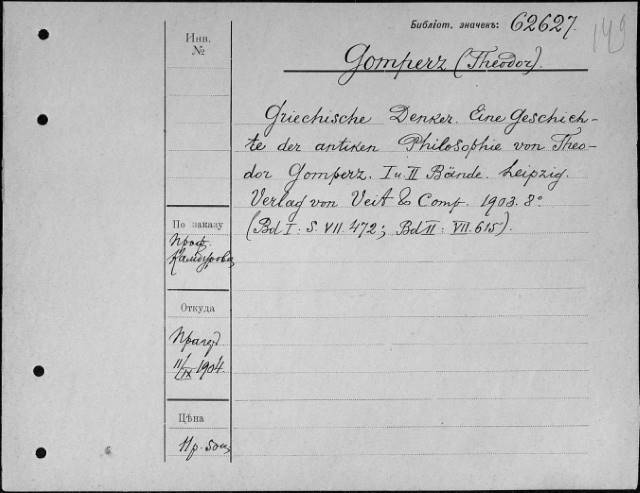 Библіот. значекъ: 62627.
149
Инв.
№
Gomperz (Theodor).
Griechische Denker. Eine Geschich-
te der antiken Philosophie von Theo-
dor Gomperz. I u II Bände. Leipzig.
Verlag von Veit & Comp. 1903. 8°
(Bd I: S. VII. 472; Bd II: VII. 615).
По заказу
Проф.
Откуда
11/IX 1904.
Цѣна
11 р. 50 к.